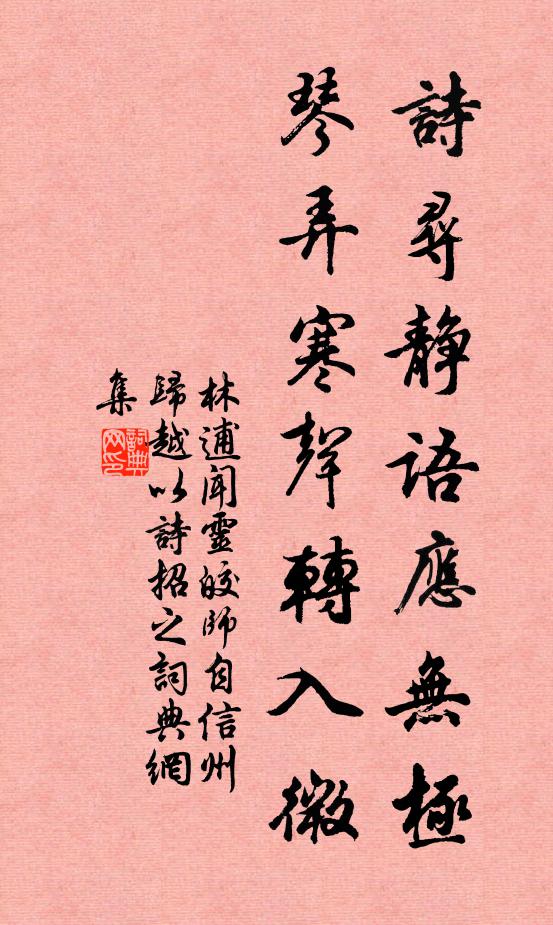 詩尋靜語應無極
琴弄寒聲轉入微
林逋聞靈皎師自信州
歸越以詩招之詞典網
集
詞典网印